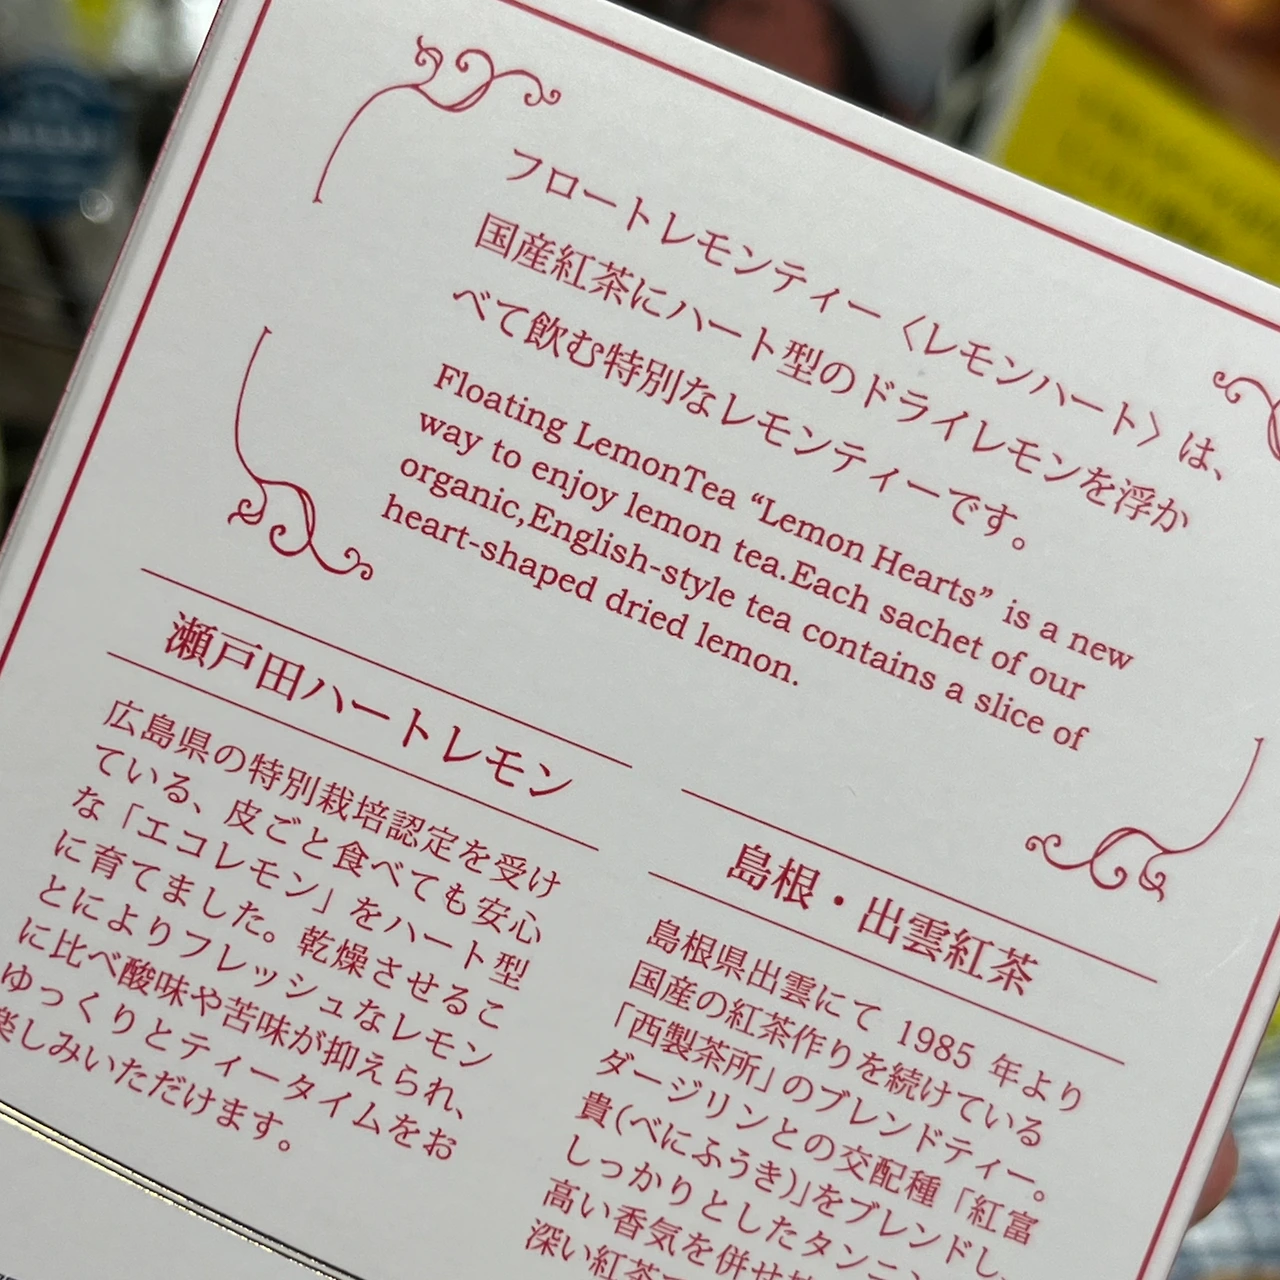 フロートレモンティー〈レモンハート〉は、
国産紅茶にハート型のドライレモンを浮か
べて飲む特別なレモンティーです。
Floating LemonTea “Lemon Hearts” is a new
way to enjoy lemon tea.Each sachet of our
organic,English-style tea contains a slice of
heart-shaped dried lemon.
瀬戸田ハートレモン
広島県の特別栽培認定を受け
ている、皮ごと食べても安心
な「エコレモン」をハート型
に育てました。乾燥させるこ
とによりフレッシュなレモン
に比べ酸味や苦味が抑えられ、
ゆっくりとティータイムをお
楽しみいただけます。
島根・出雲紅茶
島根県出雲にて 1985 年より
国産の紅茶作りを続けている
「西製茶所」のブレンドティー。
ダージリンとの交配種「紅富
貴(べにふうき)」をブレンドし、
しっかりとしたタンニ
高い香気を併せ
深い紅茶